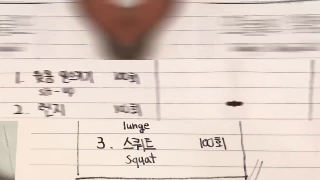 1. 윗몸 일으키기 100회
sit-up
2. 런지 100회
lunge
3. 스쿼트 100회
squat